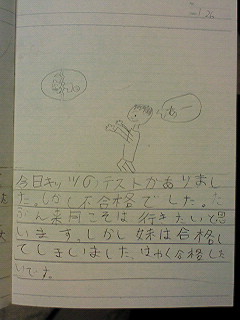 今日キッツのテストがありまし
た。しかし不合格でした。た
ぶん来月こそは行きたいと思
います。しかし妹は合格し
てしまいました。はやく合格した
いです。